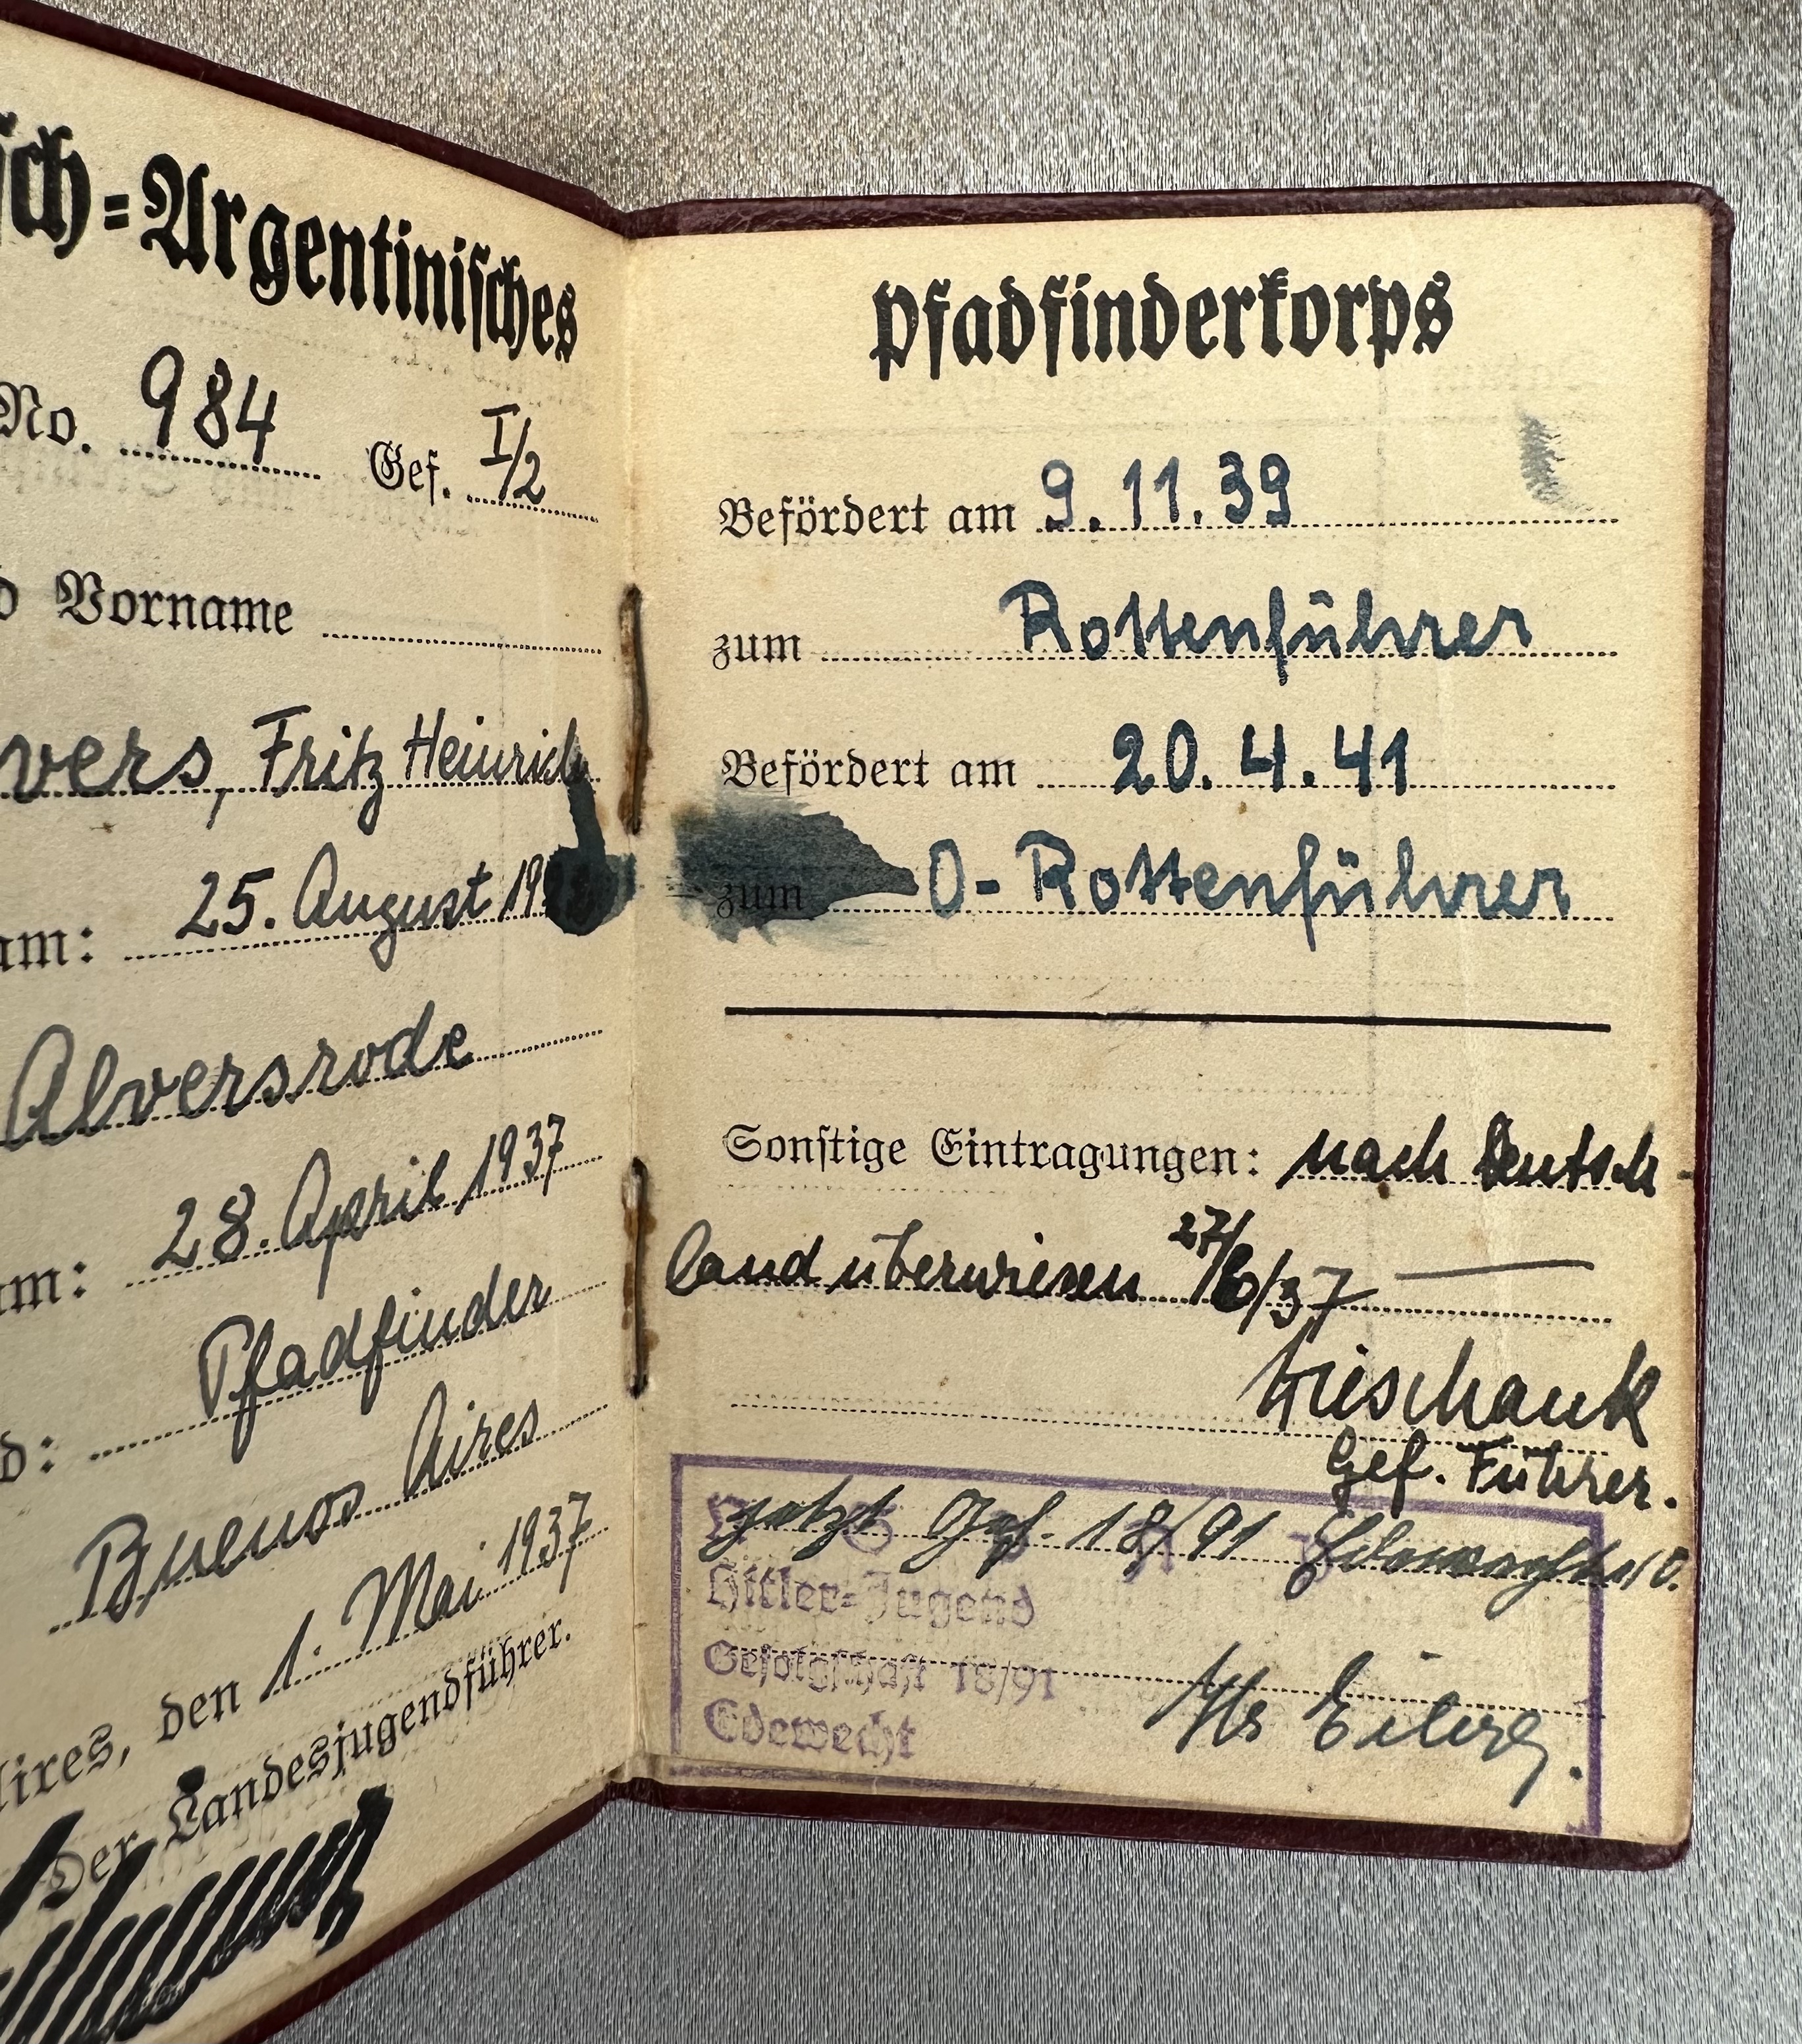 sch=Argentinisches
No. 984 Gef. I/2
d Vorname
vers, Fritz Heinrich
am: 25. August 19
Alversrode
am: 28. April 1937
d: Pfadfinder
Buenos Aires
Aires, den 1. Mai 1937
Der Landesjugendführer.
Pfadfinderkorps
Befördert am 9.11.39
zum Rottenführer
Befördert am 20.4.41
zum O-Rottenführer
Sonstige Eintragungen: nach Deutsch-
land überwiesen 27/6/37
Gef. Führer.
jetzt Gef. 18/91
Hitler=Jugend
Gefolgschaft 18/91
Edewecht
Eilers.